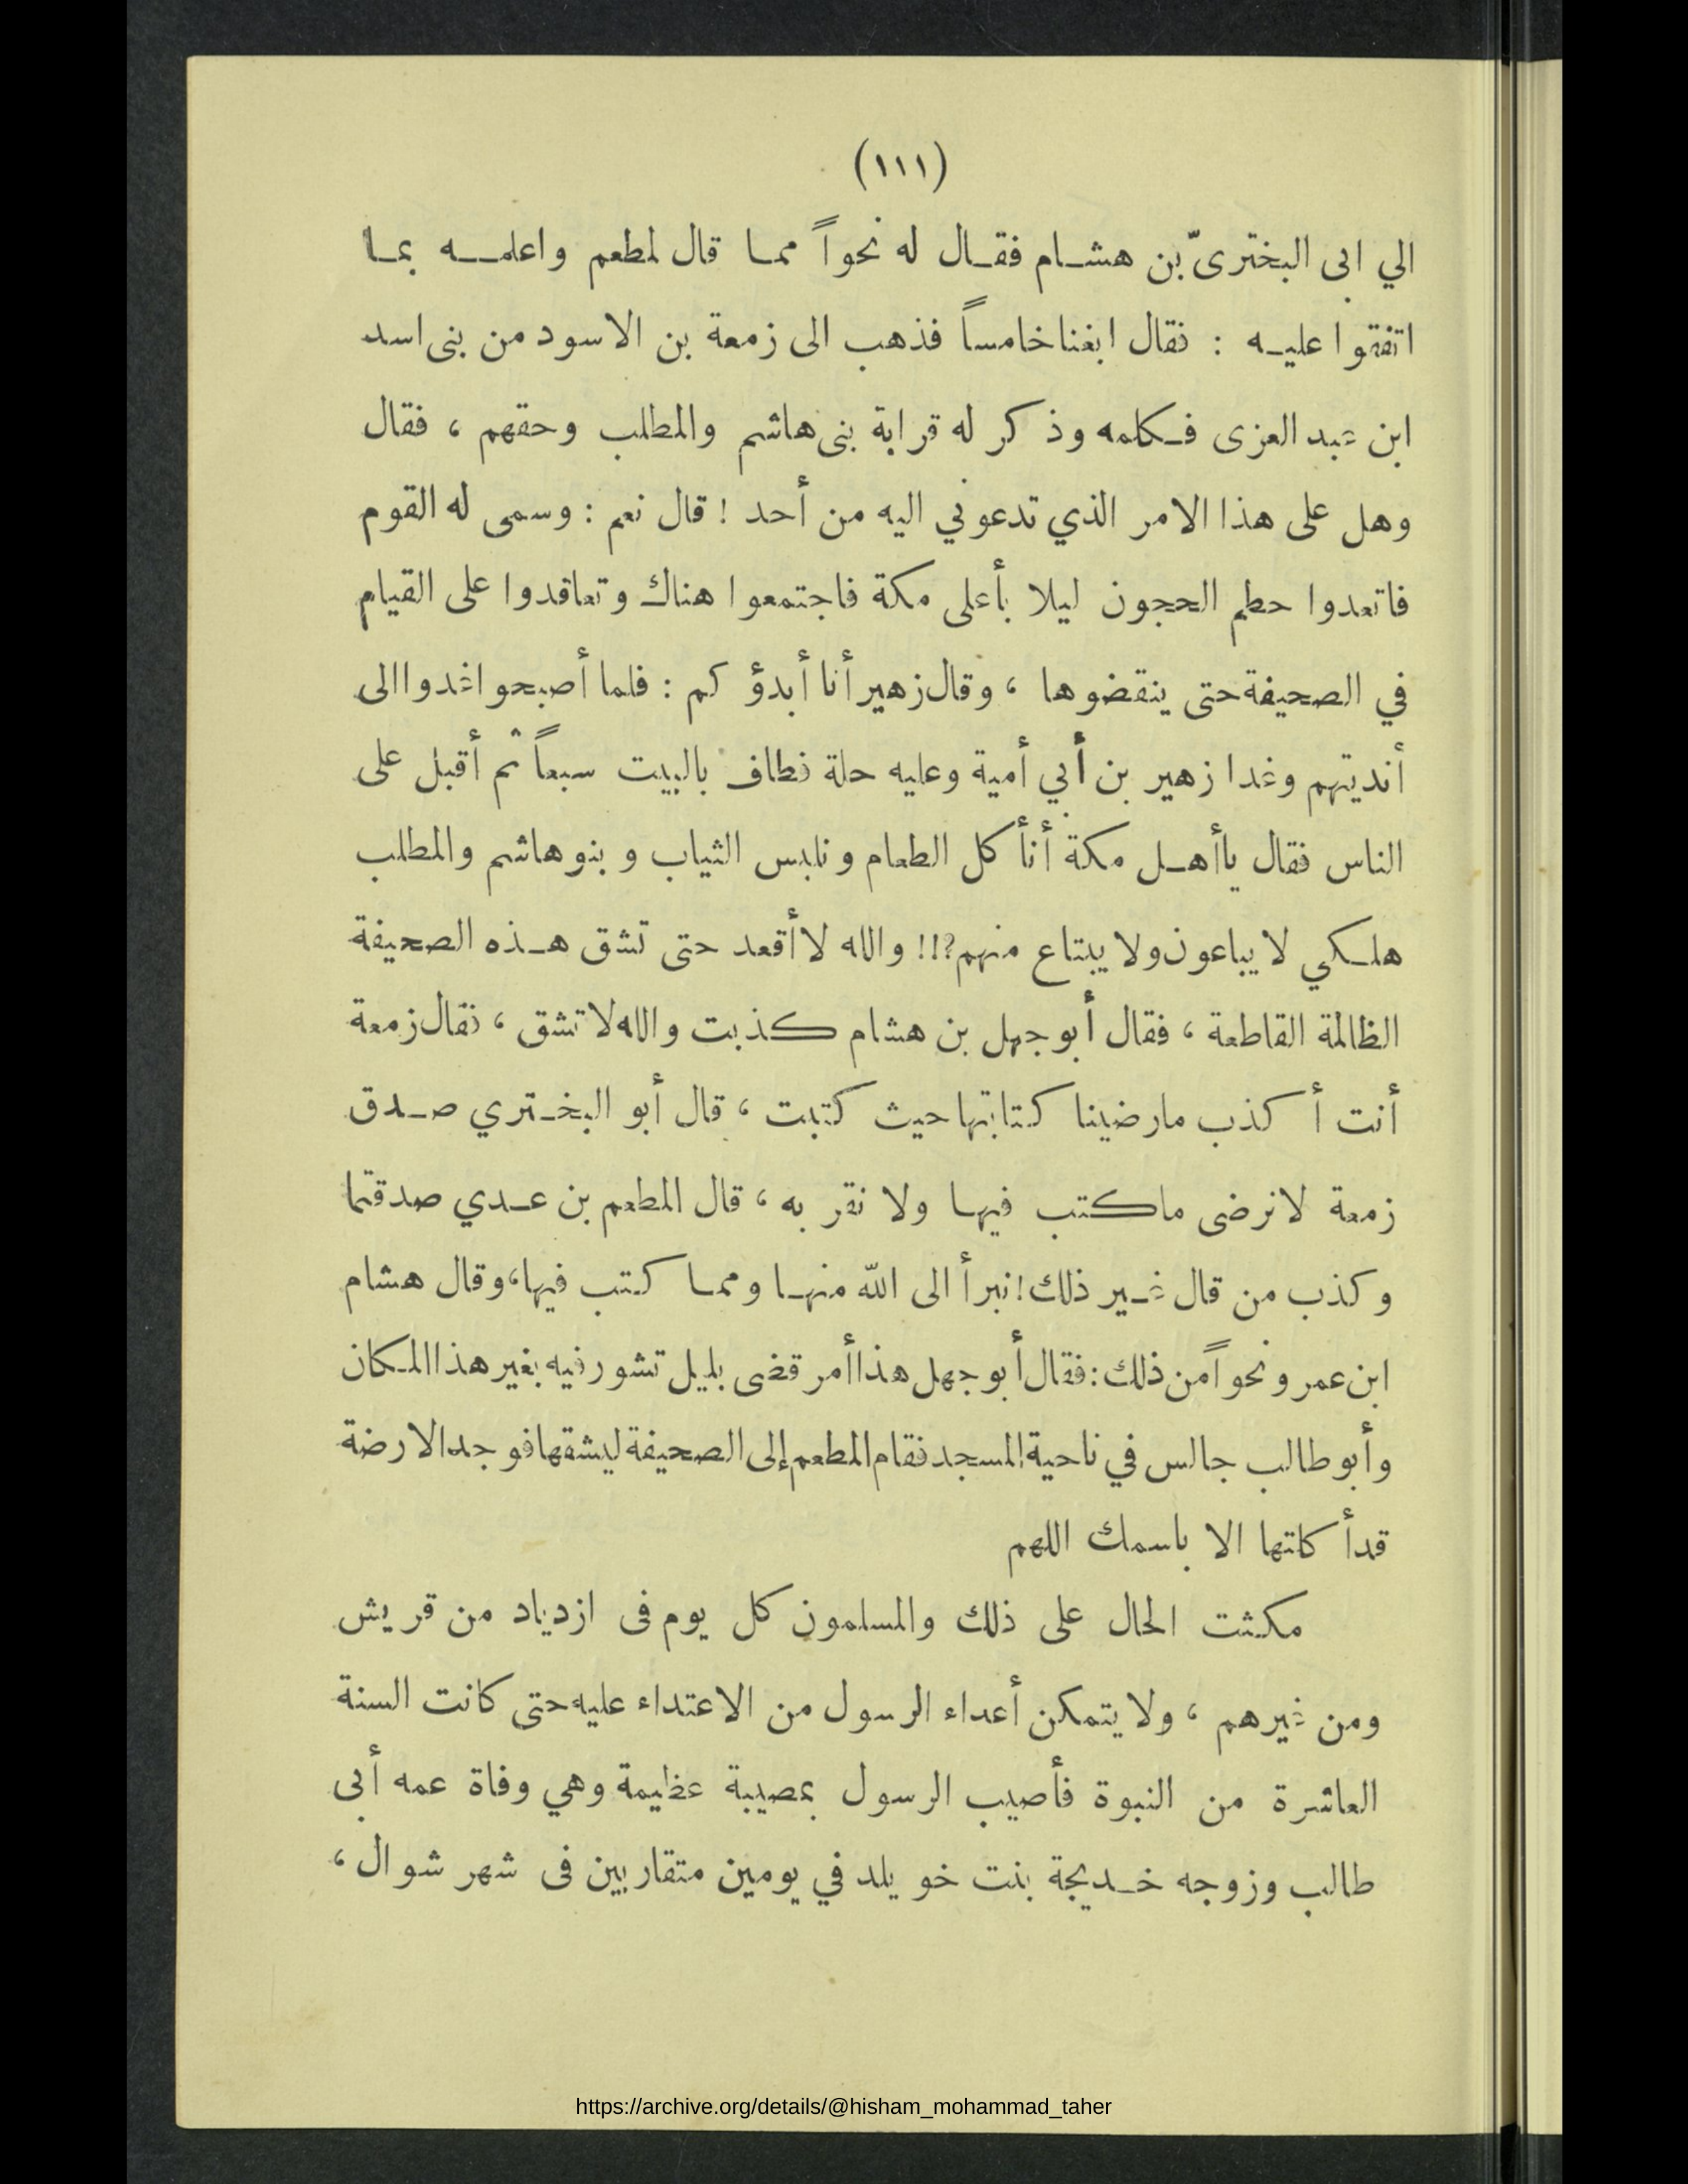 (١١١)
الي ابى البخترىّ بن هشام فقال له نحواً مما قال لمطعم واعلمه بما
اتفقوا عليه : فقال ابغنا خامساً فذهب الى زمعة بن الاسود من بنى اسد
ابن عبد العزى فكلمه وذكر له قرابة بنى هاشم والمطلب وحقهم ، فقال
وهل على هذا الامر الذي تدعوني اليه من أحد ! قال نعم : وسمى له القوم
فاتعدوا حطم الحجون ليلا بأعلى مكة فاجتمعوا هناك وتعاقدوا على القيام
في الصحيفة حتى ينقضوها ، وقال زهير أنا أبدؤكم : فلما أصبحوا غدوا الى
أنديتهم وغدا زهير بن أبي أمية وعليه حلة فطاف بالبيت سبعاً ثم أقبل على
الناس فقال يا أهل مكة أنأكل الطعام ونلبس الثياب وبنو هاشم والمطلب
هلكي لا يباعون ولا يبتاع منهم؟!! والله لا أقعد حتى تشق هذه الصحيفة
الظالمة القاطعة ، فقال أبو جهل بن هشام كذبت والله لا تشق ، فقال زمعة
أنت أكذب مارضينا كتابتها حيث كتبت ، قال أبو البختري صدق
زمعة لانرضى ماكتب فيها ولا نقر به ، قال المطعم بن عدي صدقتما
وكذب من قال غير ذلك! نبرأ الى الله منها ومما كتب فيها، وقال هشام
ابن عمرو نحواً من ذلك : فقال أبو جهل هذا أمر قضى بليل تشور فيه بغير هذا المكان
وأبو طالب جالس في ناحية المسجد فقام المطعم إلى الصحيفة ليشقها فوجد الارضة
قد أكلتها الا باسمك اللهم
مكثت الحال على ذلك والمسلمون كل يوم فى ازدياد من قريش
ومن غيرهم ، ولا يتمكن أعداء الرسول من الاعتداء عليه حتى كانت السنة
العاشرة من النبوة فأصيب الرسول بمصيبة عظيمة وهي وفاة عمه أبى
طالب وزوجه خديجة بنت خويلد في يومين متقاربين فى شهر شوال ،
https://archive.org/details/@hisham_mohammad_taher